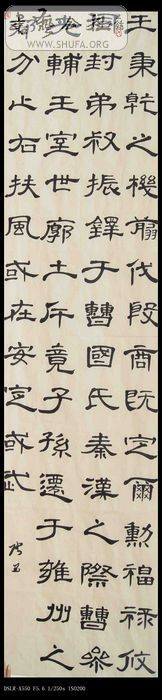 王秉乾之機翦伐殷商既定爾勳福祿攸
封弟叔振鐸于曹國氏秦漢之際曹參
夾輔王室世廓土斥竟子孫遷于雍州之
分止右扶風或在安定或武
WWW.SHUFA.ORG
DSLR-A550 F5.6 1/250s ISO200